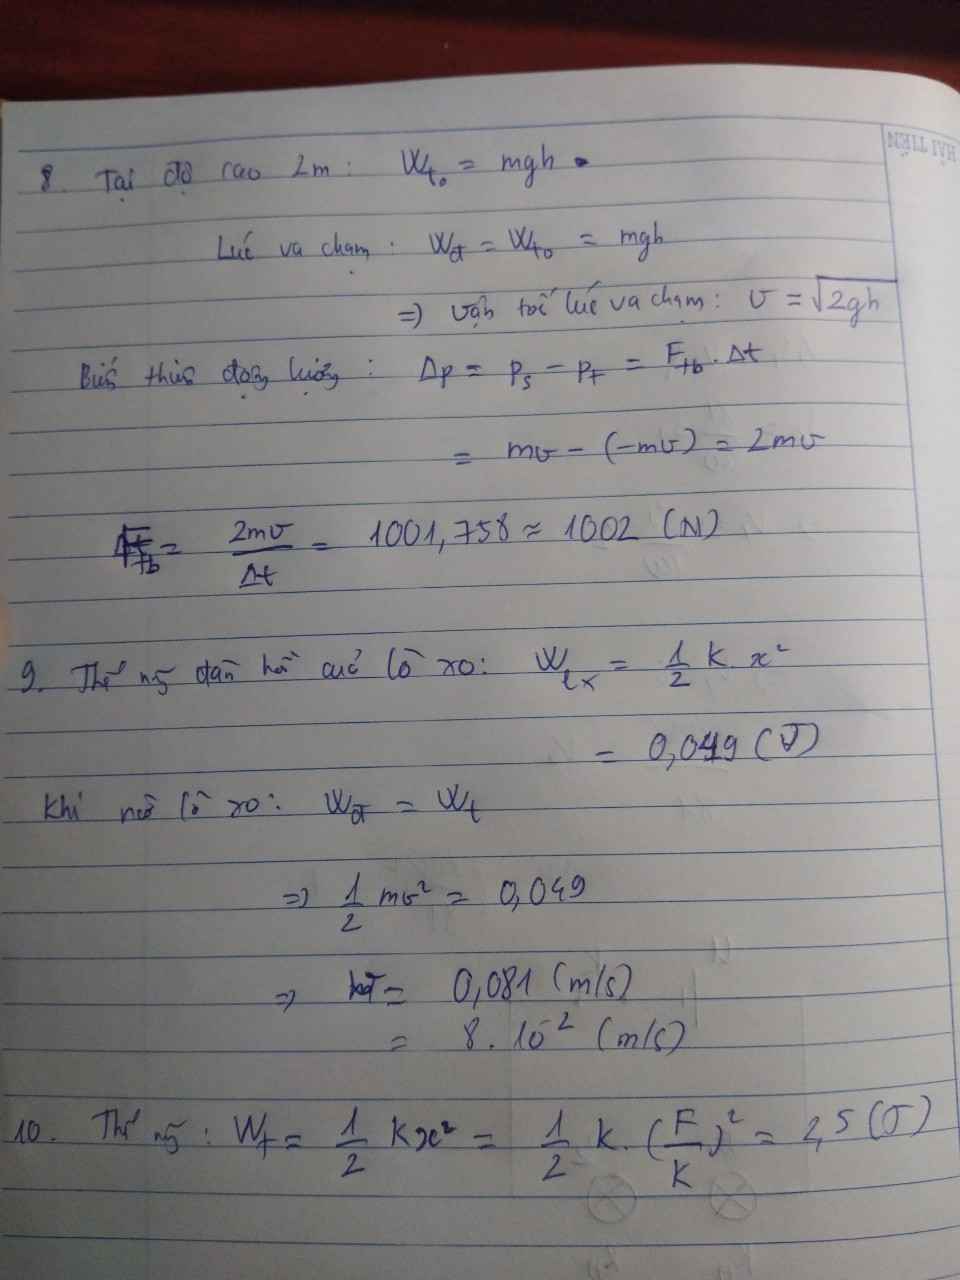 HẢI TIẾN
8. Tại độ cao 2m: Wt₀ = mgh
Lúc va chạm: Wđ = Wt₀ = mgh
=> vận tốc lúc va chạm: v = √2gh
Biến thiên động lượng: Δp = pₛ - pₜ = Ftb . Δt
= mv - (-mv) = 2mv
Ftb = 2mv/Δt = 1001,758 ≈ 1002 (N)
9. Thế năng đàn hồi của lò xo: Wlx = 1/2 k . x²
= 0,049 (J)
Khi nở lò xo: Wđ = Wt
=> 1/2 mv² = 0,049
=> = 0,081 (m/s)
= 8 . 10⁻² (m/s)
10. Thế năng: Wt = 1/2 kx² = 1/2 k . (F/k)² = 2,5 (J)